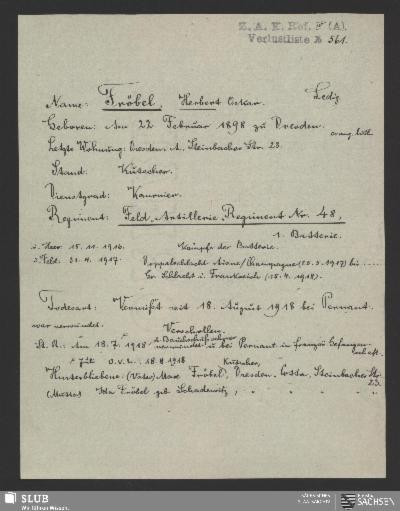 Z. A. K. Ref. IV (A).
Verlustliste № 561.
Name: Fröbel, Herbert Oskar. Ledig
Geboren: Am 22 Februar 1898 zu Dresden.
evang. luth.
Letzte Wohnung: Dresden. A, Steinbacher Str. 23.
Stand: Kutscher.
Dienstgrad: Kanonier.
Regiment: Feld Artillerie Regiment Nr. 48,
1. Batterie.
i. Heer: 15. 11. 1916. Kämpfe der Batterie.
i. Feld: 31. 4. 1917. Doppelschlacht Aisne/Champagne (25.5.1917) bis
Gr. Schlacht i. Frankreich (15.4.1918).
Todesart: Vermißt seit 18. August 1918 bei Pernant.
war verwundet. Verschollen.
St. R.: Am 18.7.1918 verwundet u. bei Pernant in französ. Gefangen-
schaft.
O.v.L. 18.8.1918
Kutscher,
Hinterbliebene: (Vater) Max Fröbel, Dresden. Cossa, Steinbacher Str.
23.
(Mutter) Ida Fröbel geb Schadewitz, " " " "
SLUB
Wir führen Wissen.
SACHSEN